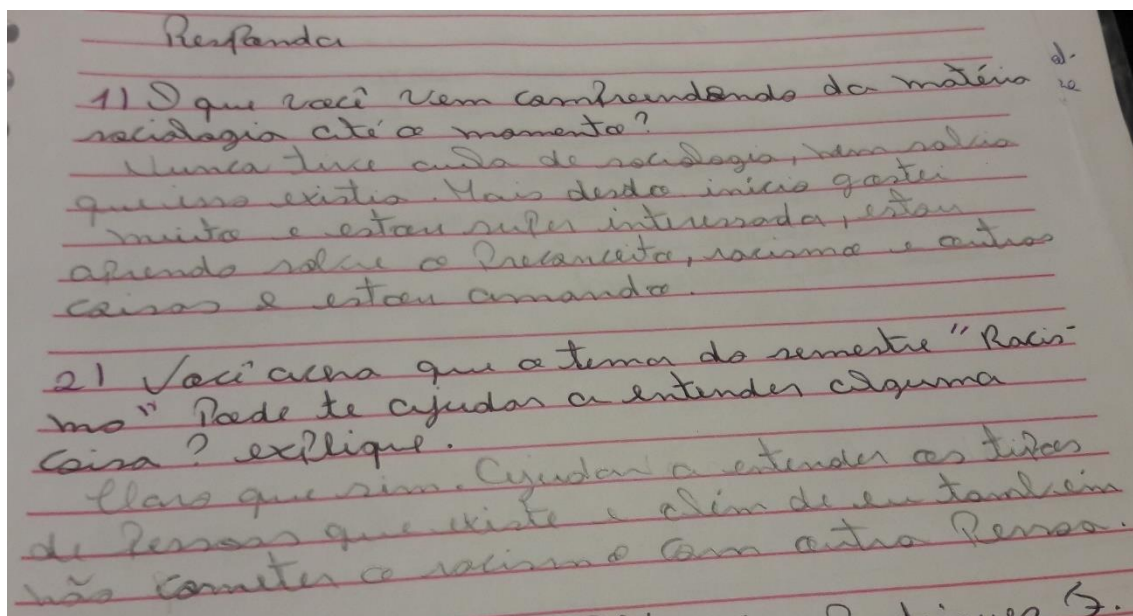 Responda
1) O que você vem compreendendo da matéria
sociologia até o momento?
Nunca tive aula de sociologia, nem sabia
que isso existia. Mais desde o início gostei
muito e estou super interessada, estou
aprendo sobre o Preconceito, racismo e outras
coisas e estou amando.
2) Você acha que o tema do semestre "Racis-
mo" Pode te ajudar a entender alguma
coisa? explique.
Claro que sim. Ajudar a entender os tipos
de Pessoas que existe e além de eu também
não cometer o racismo com outra Pessoa.